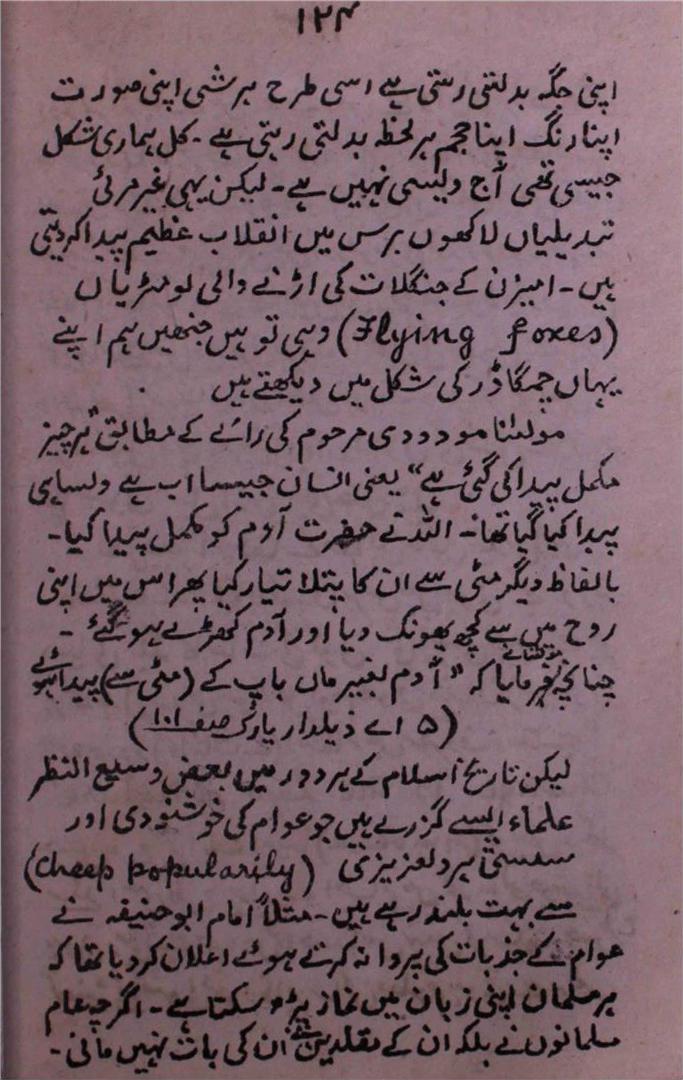 ۱۲۴
اپنی جگہ بدلتی رہتی ہے اسی طرح ہر شی اپنی صورت
اپنا رنگ اپنا حجم ہر لحظہ بدلتی رہتی ہے ۔ کل ہماری شکل
جیسی تھی آج ویسی نہیں ہے ۔ لیکن یہی غیر مرئی
تبدیلیاں لاکھوں برس میں انقلاب عظیم پیدا کردیتی
ہیں ۔ امیزن کے جنگلات کی اڑنے والی لومٹریاں
(Flying foxes) وہی تو ہیں جنھیں ہم اپنے
یہاں چمگاڈر کی شکل میں دیکھتے ہیں
مولٰنا مودودی مرحوم کی رائے کے مطابق "ہر چیز
مکمل پیدا کی گئی ہے" یعنی انسان جیسا اب ہے ویسا ہی
پیدا کیا گیا تھا ۔ اللہ نے حضرت آدم کو مکمل پیدا کیا ۔
بالفاظ دیگر مٹی سے ان کا پتلا تیار کیا پھر اس میں اپنی
روح میں سے کچھ پھونک دیا اور آدم کھڑے ہو گئے ۔
چنانچہ مولٰنا نے فرمایا کہ "آدم بغیر ماں باپ کے (مٹی سے) پیدا ہوئے
(۵ اے ذیلدار پارک صفہ ۱۰۱)
لیکن تاریخ اسلام کے ہر دور میں بعض وسیع النظر
علماء ایسے گزرے ہیں جو عوام کی خوشنودی اور
سستی ہردلعزیزی (Cheep popularily)
سے بہت بلند رہے ہیں ۔ مثلاً امام ابو حنیفہ نے
عوام کے جذبات کی پروا نہ کرتے ہوئے اعلان کر دیا تھا کہ
ہر مسلمان اپنی زبان میں نماز پڑھ سکتا ہے ۔ اگرچہ عام
مسلمانوں نے بلکہ ان کے مقلدین نے ان کی بات نہیں مانی ۔